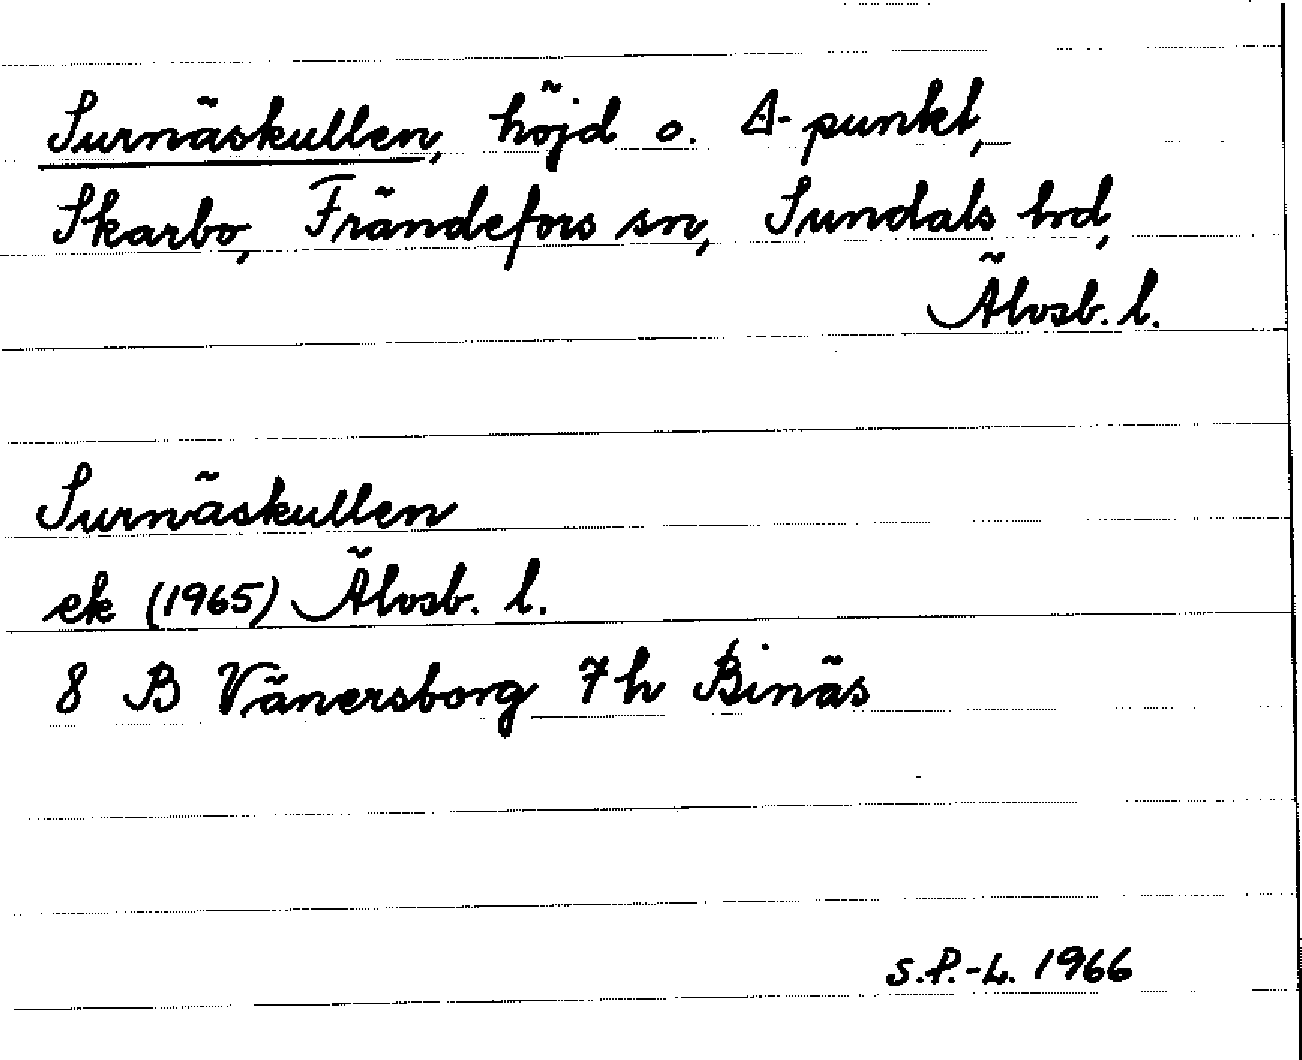 Surnäskullen, höjd o. Δ-punkt,
Skarbo, Frändefors sn, Sundals hd,
Älvsb. l.
Surnäskullen
ek (1965) Älvsb. l.
8 B Vänersborg 7 h Binäs
S.P.-L. 1966